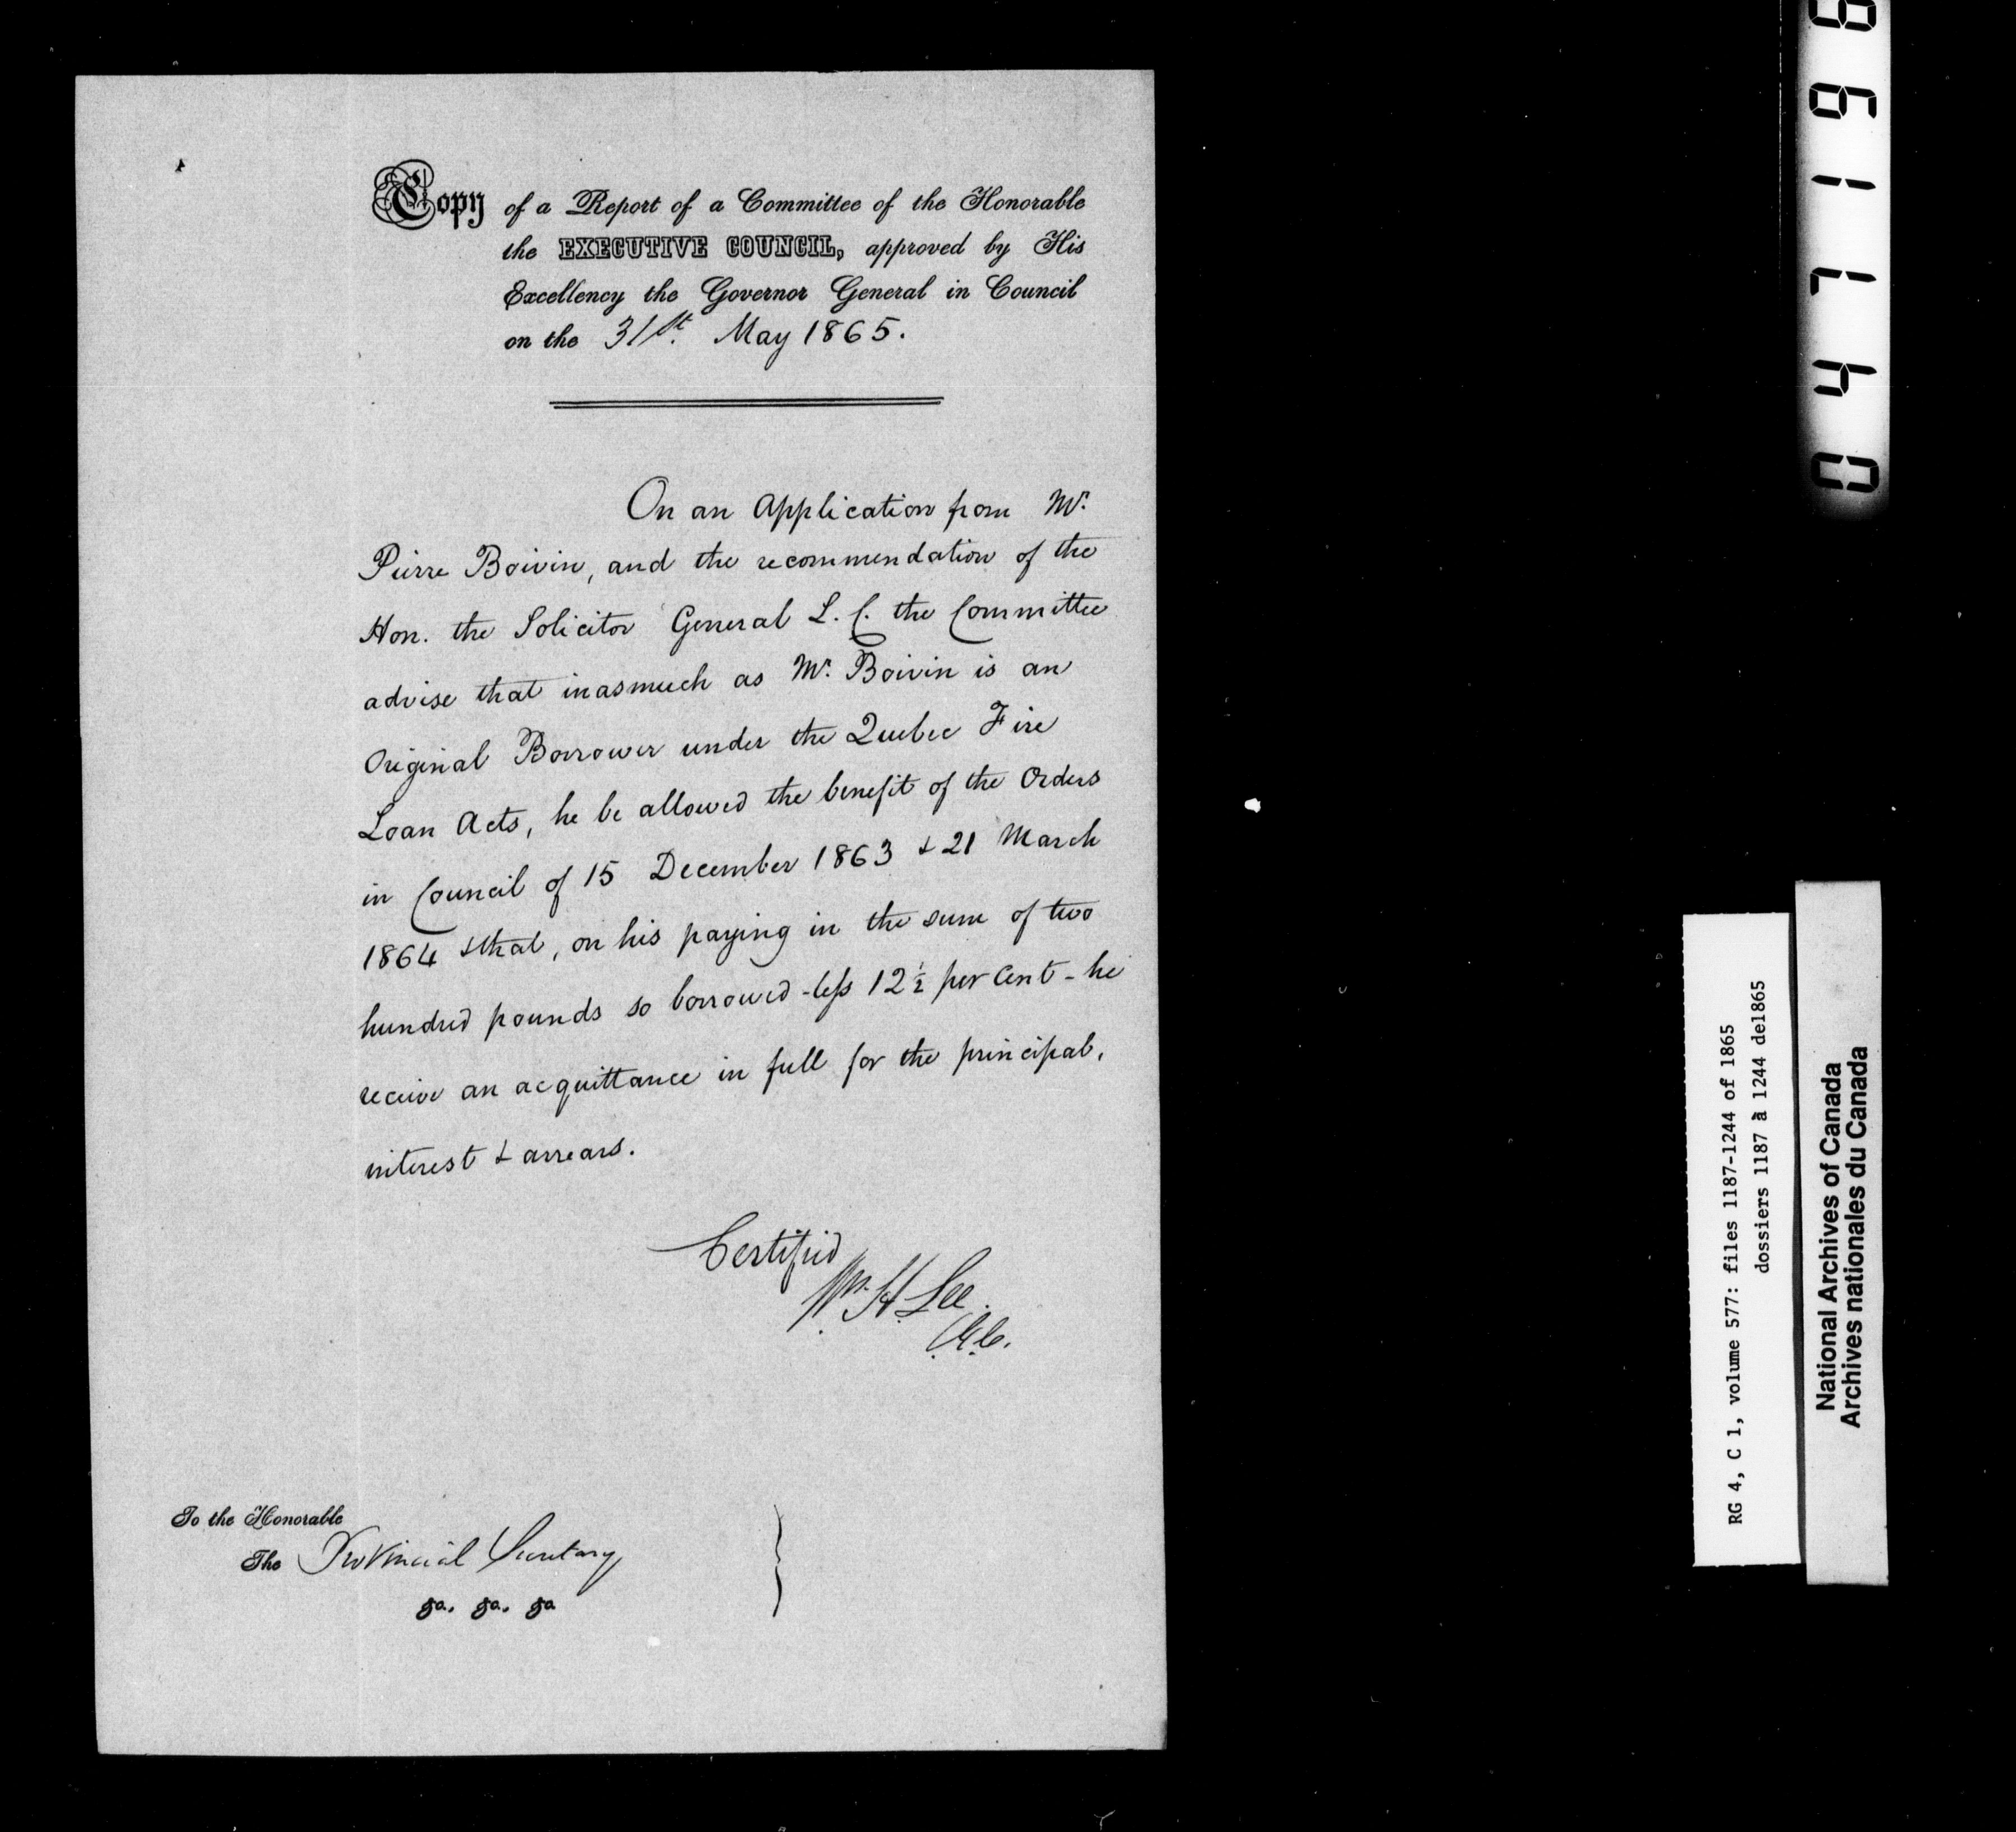 Copy of a Report of a Committee of the Honorable
the EXECUTIVE COUNCIL, approved by His
Excellency the Governor General in Council
on the 31st. May 1865.
On an Application from Mr.
Pierre Boivin, and the recommendation of the
Hon. the Solicitor General L. C. the Committee
advise that inasmuch as Mr. Boivin is an
Original Borrower under the Quebec Fire
Loan Acts, he be allowed the benefit of the Orders
in Council of 15 December 1863 & 21 March
1864 & that, on his paying in the sum of two
hundred pounds so borrowed - less 12 ½ per Cent - he
receive an acquittance in full for the principal,
interest & arrears.
Certified
Wm. H. Lee
To the Honorable
The Provincial Secretary
&a. &a. &a
RG 4, C 1, volume 577: files 1187-1244 of 1865
dossiers 1187 à 1244 de1865
National Archives of Canada
Archives nationales du Canada